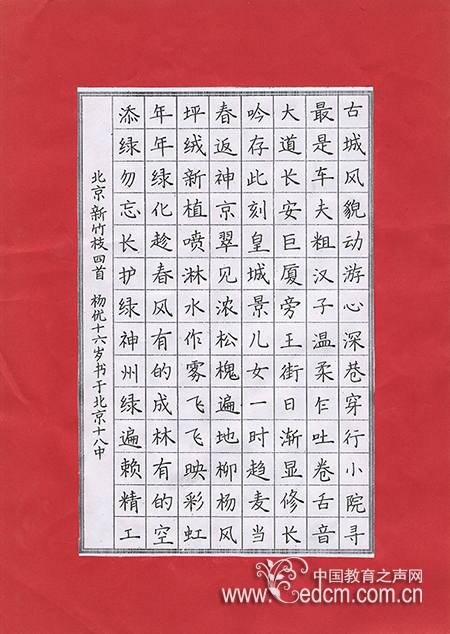 古城风貌动游心深巷穿行小院寻
最是车夫粗汉子温柔乍吐卷舌音
大道长安巨厦旁王街日渐显修长
吟存此刻皇城景儿女一时趋麦当
春返神京翠见浓松槐遍地柳杨风
坪绒新植喷淋水作雾飞飞映彩虹
年年绿化趁春风有的成林有的空
添绿勿忘长护绿神州绿遍赖精工
北京新竹枝四首 杨优十六岁书于北京十八中
中国教育之声网
www.edcm.com.cn